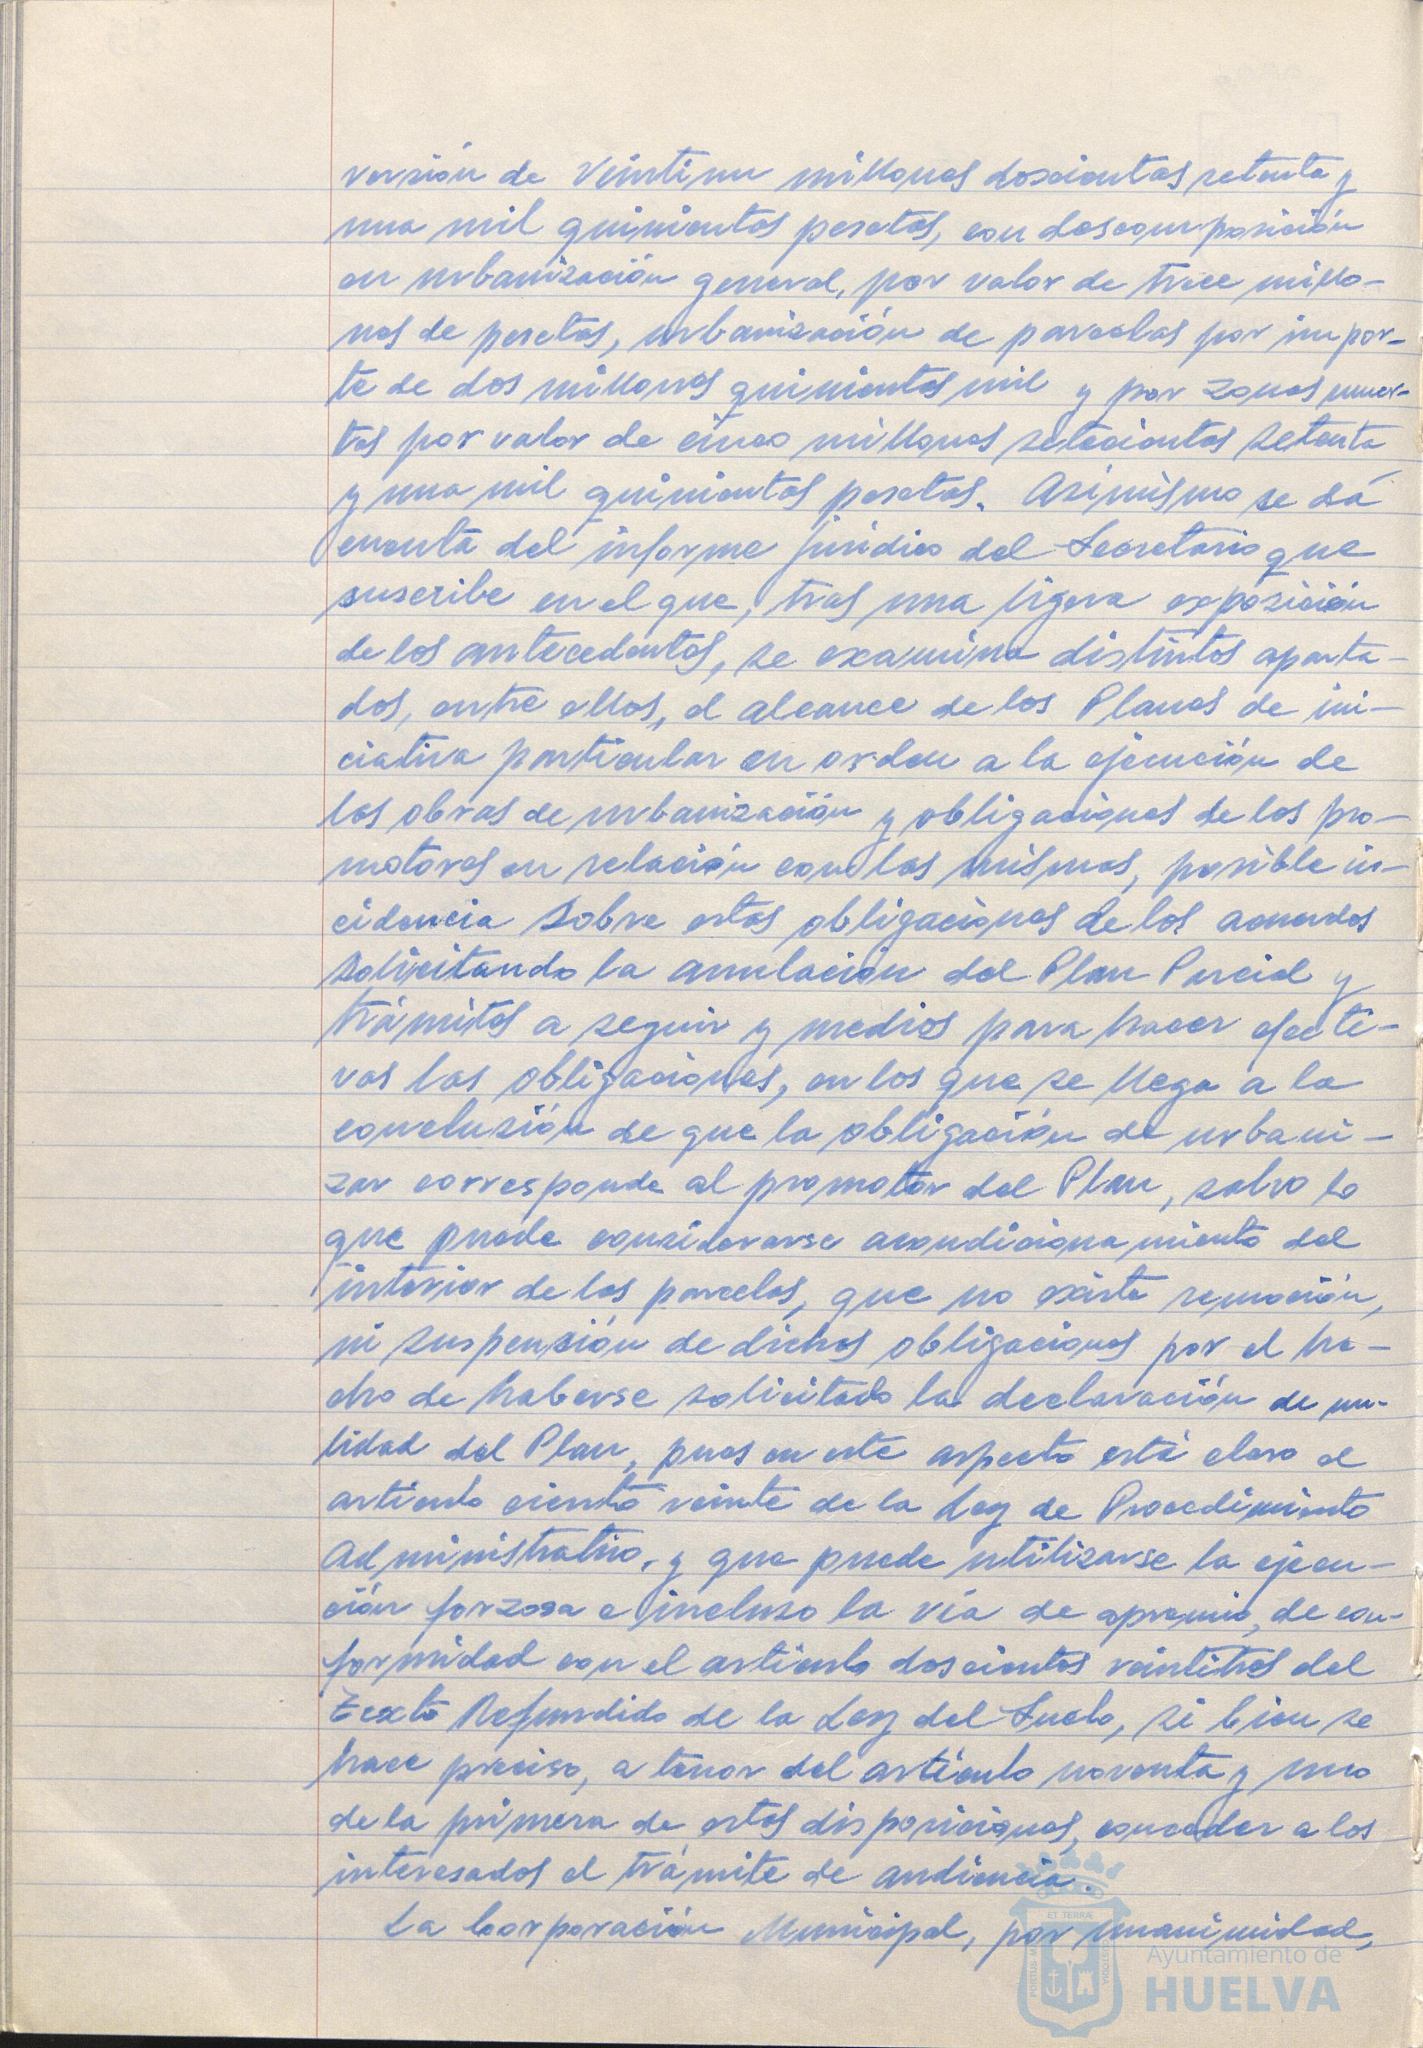 versión de veintiun millones doscientas setenta y
una mil quinientas pesetas, con descomposición
en urbanización general, por valor de trece millo-
nes de pesetas, urbanización de parcelas por impor-
te de dos millones quinientas mil y por zonas muer-
tas por valor de cinco millones setecientas setenta
y una mil quinientas pesetas. Asimismo se dá
cuenta del informe jurídico del Secretario que
suscribe en el que, tras una ligera exposición
de los antecedentes, se examina distintos aparta-
dos, entre ellos, el alcance de los Planes de ini-
ciativa particular en orden a la ejecución de
las obras de urbanización y obligaciones de los pro-
motores en relación con las mismas, posible in-
cidencia sobre estas obligaciones de los acuerdos
solicitando la anulación del Plan Parcial y
trámites a seguir y medios para hacer efecti-
vas las obligaciones, en los que se llega a la
conclusión de que la obligación de urbani-
zar corresponde al promotor del Plan, salvo lo
que puede considerarse acondicionamiento del
interior de las parcelas, que no existe remoción,
ni suspensión de dichas obligaciones por el he-
cho de haberse solicitado la declaración de nu-
lidad del Plan, pues en este aspecto está claro el
artículo ciento veinte de la Ley de Procedimiento
Administrativo, y que puede utilizarse la ejecu-
ción forzosa e incluso la vía de apremio, de con-
formidad con el artículo doscientos veintitres del
Texto Refundido de la Ley del Suelo, si bien se
hace preciso, a tenor del artículo noventa y uno
de la primera de estas disposiciones, conceder a los
interesados el trámite de audiencia.
La Corporación Municipal, por unanimidad,
ET TERRÆ
Ayuntamiento de
HUELVA